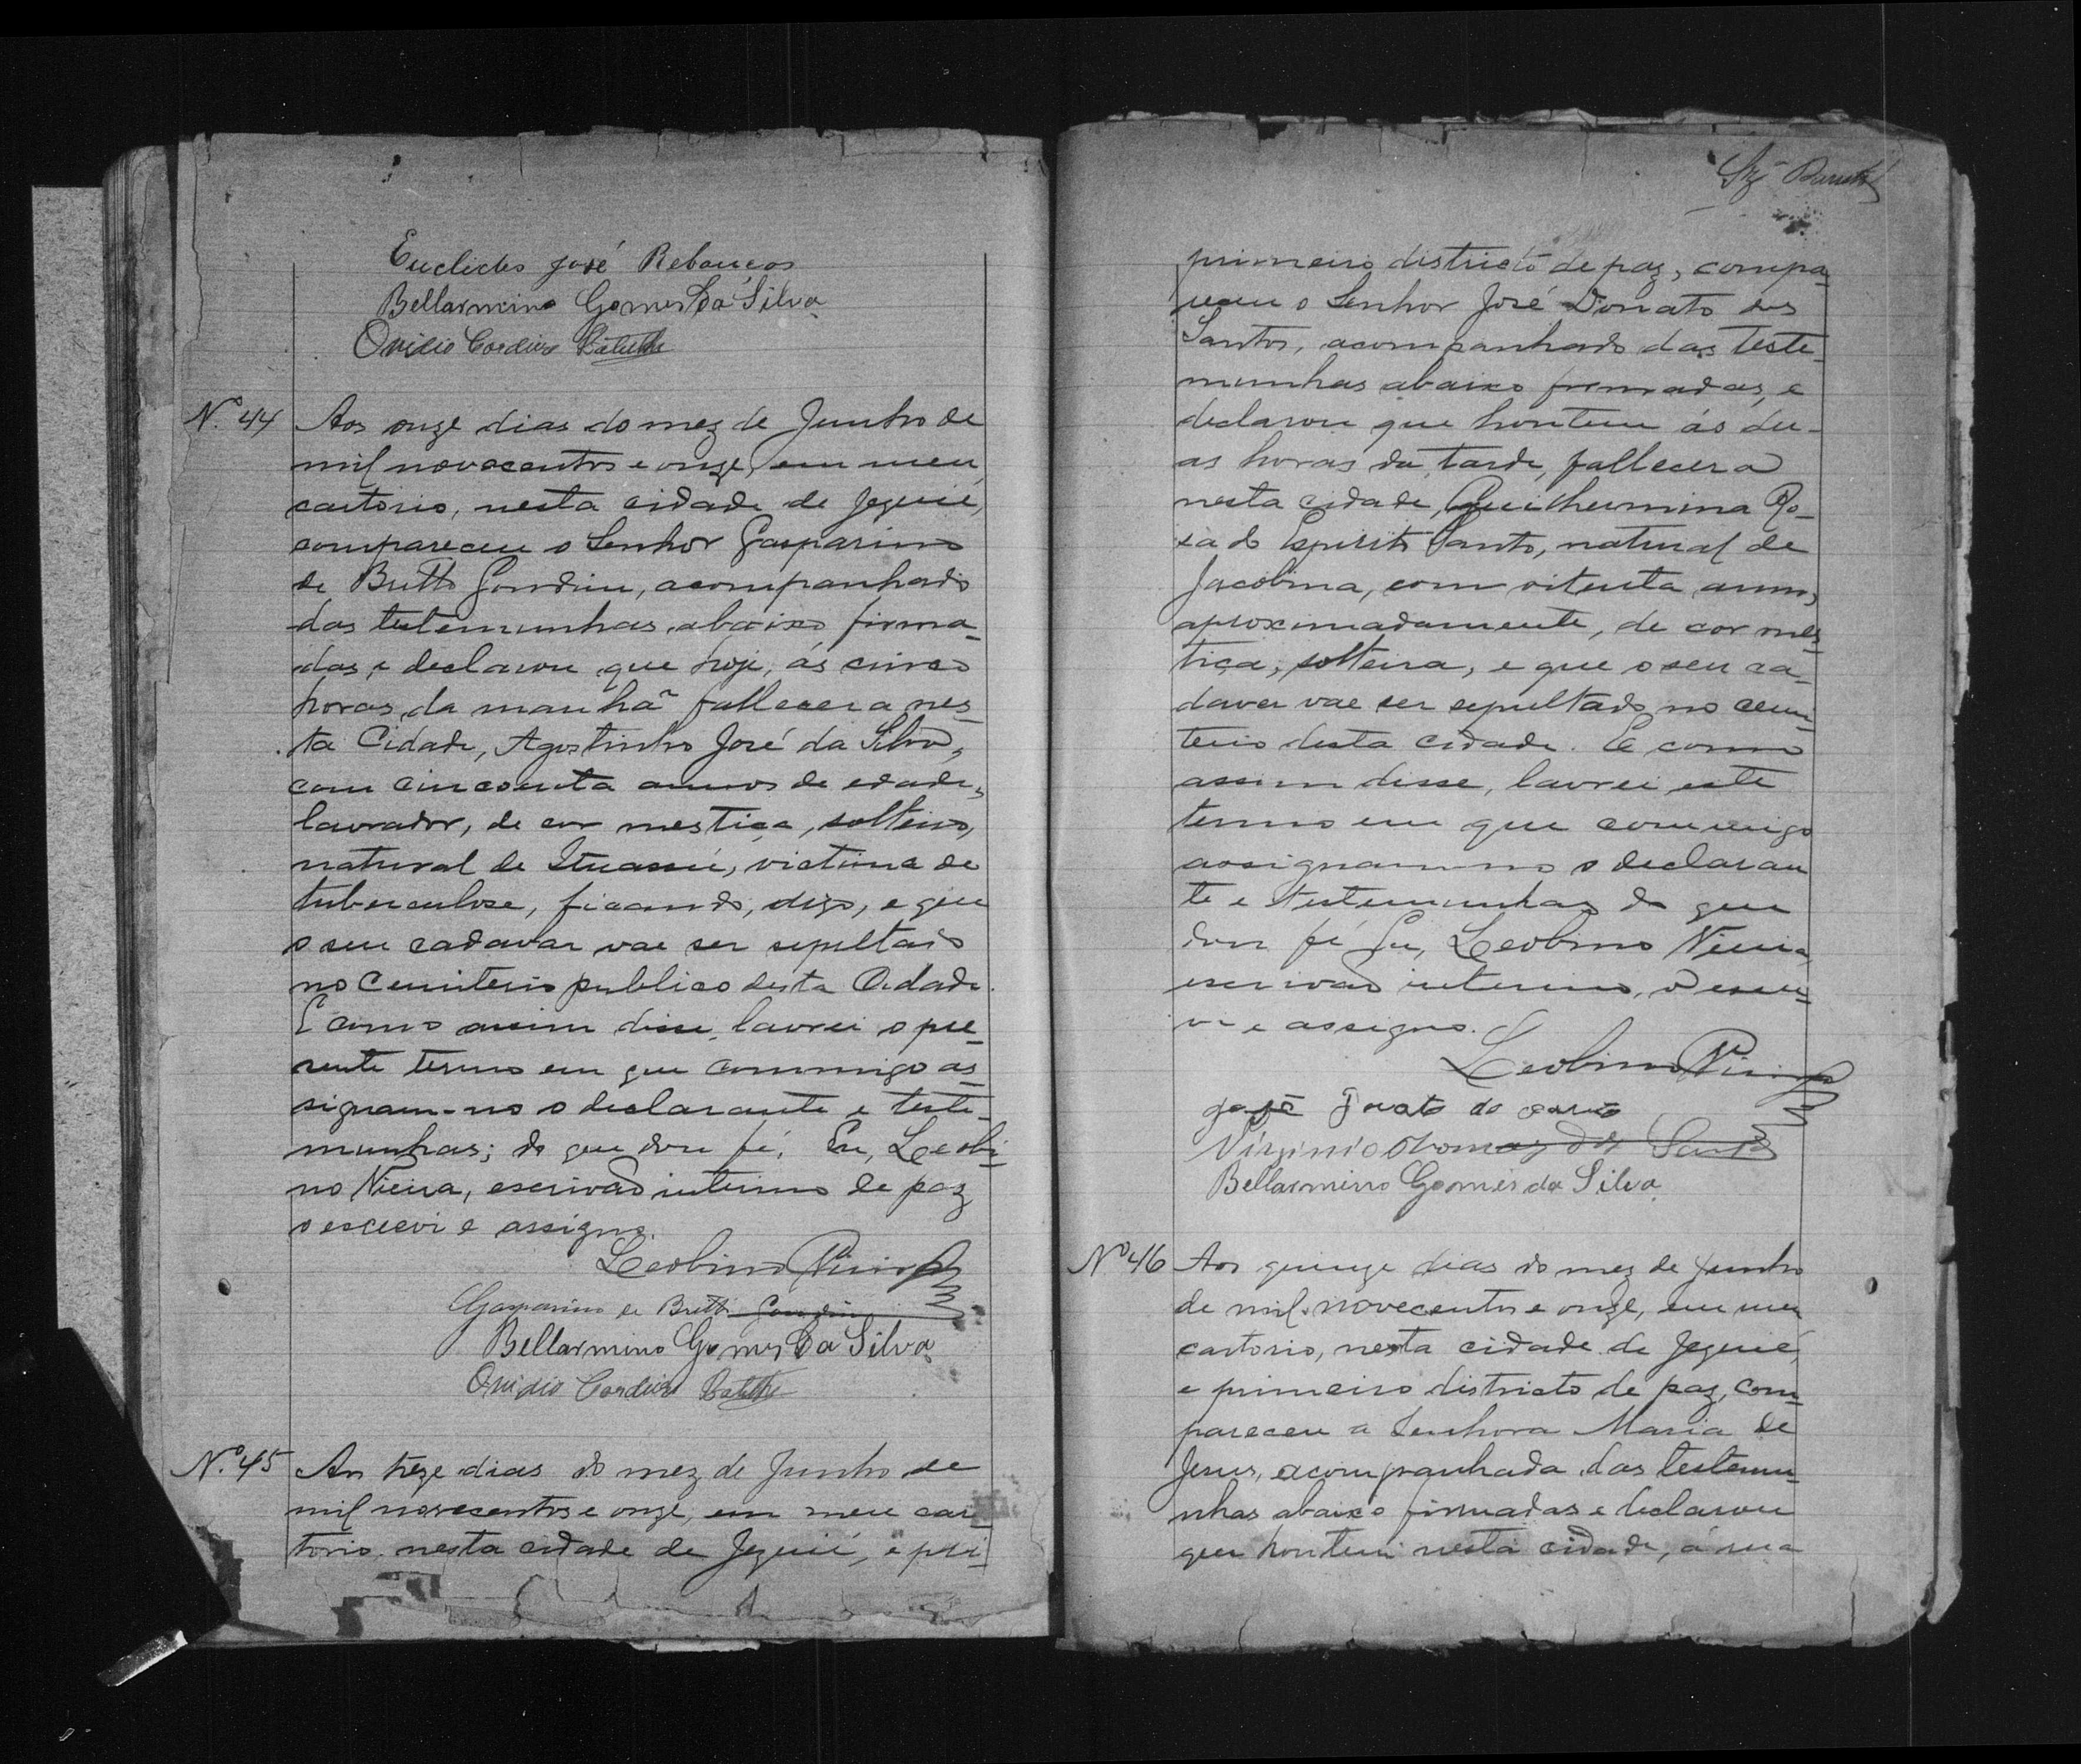 Euclides José Rebouços
Bellarmino Gomes Da Silva
Ovidio Cordeiro
Nº. 44 Aos onze dias do mez de Junho de
mil novecentos e onze, em meu
cartorio, nesta cidade de Jequié,
compareceu o Senhor Gasparino
de Britto Gondim, acompanhado
das testemunhas abaixo firma-
das, e declarou que hoje, ás cinco
horas da manhã fallecera nes-
ta Cidade, Agostinho José da Silva,
com cincoenta annos de edade,
lavrador, de cor mestiça, solteiro,
natural de Ituassú, victima de
tuberculose, ficando, digo, e que
o seu cadaver vae ser sepultado
no Cemiterio publico desta Cidade.
E como assim disse, lavrei o pre-
sente termo em que commigo as-
signam-no o declarante e teste-
munhas; do que dou fé. Eu, Leobi-
no Vieira, escrivão interino de paz
o escrevi e assigno.
Leobino Vieira
Gasparino de Britto Gondim
Bellarmino Gomes Da Silva
Ovidio Cordeiro
Nº. 45 Aos treze dias do mez de Junho de
mil novecentos e onze, em meu car-
torio, nesta cidade de Jequié, e pri-
primeiro districto de paz, compa-
receu o Senhor José Donato dos
Santos, acompanhado das teste-
munhas abaixo firmadas, e
declarou que hontem ás du-
as horas da tarde, fallecera
nesta cidade, Guilhermina Ro-
sa do Espirito Santo, natural de
Jacobina, com oitenta annos
aproximadamente, de cor mes-
tiça, solteira, e que o seu ca-
daver vae ser sepultado no cemi-
terio desta cidade. E como
assim disse, lavrei este
termo em que commigo
assignam-no o declaran
te e testemunhas do que
dou fé. Eu, Leobino Vieira,
escrivão interino, o escre-
vi e assigno.
Leobino Vieira
José
Virginio dos Santos
Bellarmino Gomes da Silva
Nº 46 Aos quinze dias do mez de Junho
de mil novecentos e onze, em meu
cartorio, nesta cidade de Jequié,
e primeiro districto de paz, com-
pareceu a Senhora Maria de
Jesus, acompanhada das testemu-
nhas abaixo firmadas e declarou
que hontem nesta cidade, á uma